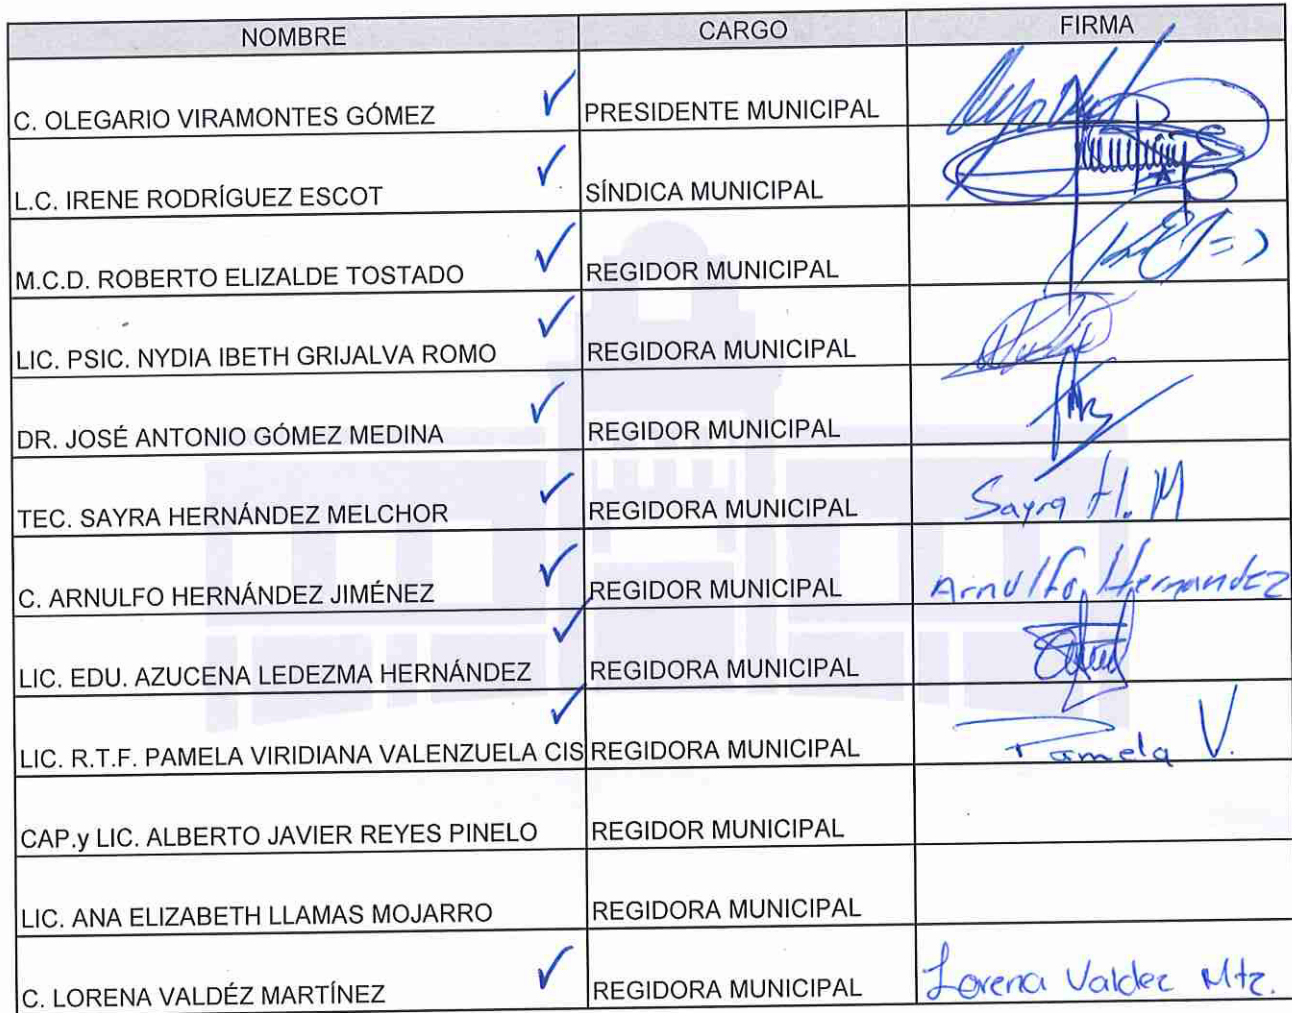 NOMBRE CARGO FIRMA
C. OLEGARIO VIRAMONTES GÓMEZ PRESIDENTE MUNICIPAL
L.C. IRENE RODRÍGUEZ ESCOT SÍNDICA MUNICIPAL
M.C.D. ROBERTO ELIZALDE TOSTADO REGIDOR MUNICIPAL
LIC. PSIC. NYDIA IBETH GRIJALVA ROMO REGIDORA MUNICIPAL
DR. JOSÉ ANTONIO GÓMEZ MEDINA REGIDOR MUNICIPAL
TEC. SAYRA HERNÁNDEZ MELCHOR REGIDORA MUNICIPAL Sayra H. M
C. ARNULFO HERNÁNDEZ JIMÉNEZ REGIDOR MUNICIPAL Arnulfo Hernandez
LIC. EDU. AZUCENA LEDEZMA HERNÁNDEZ REGIDORA MUNICIPAL
LIC. R.T.F. PAMELA VIRIDIANA VALENZUELA CIS REGIDORA MUNICIPAL Pamela V.
CAP.y LIC. ALBERTO JAVIER REYES PINELO REGIDOR MUNICIPAL
LIC. ANA ELIZABETH LLAMAS MOJARRO REGIDORA MUNICIPAL
C. LORENA VALDÉZ MARTÍNEZ REGIDORA MUNICIPAL Lorena Valdez Mtz.